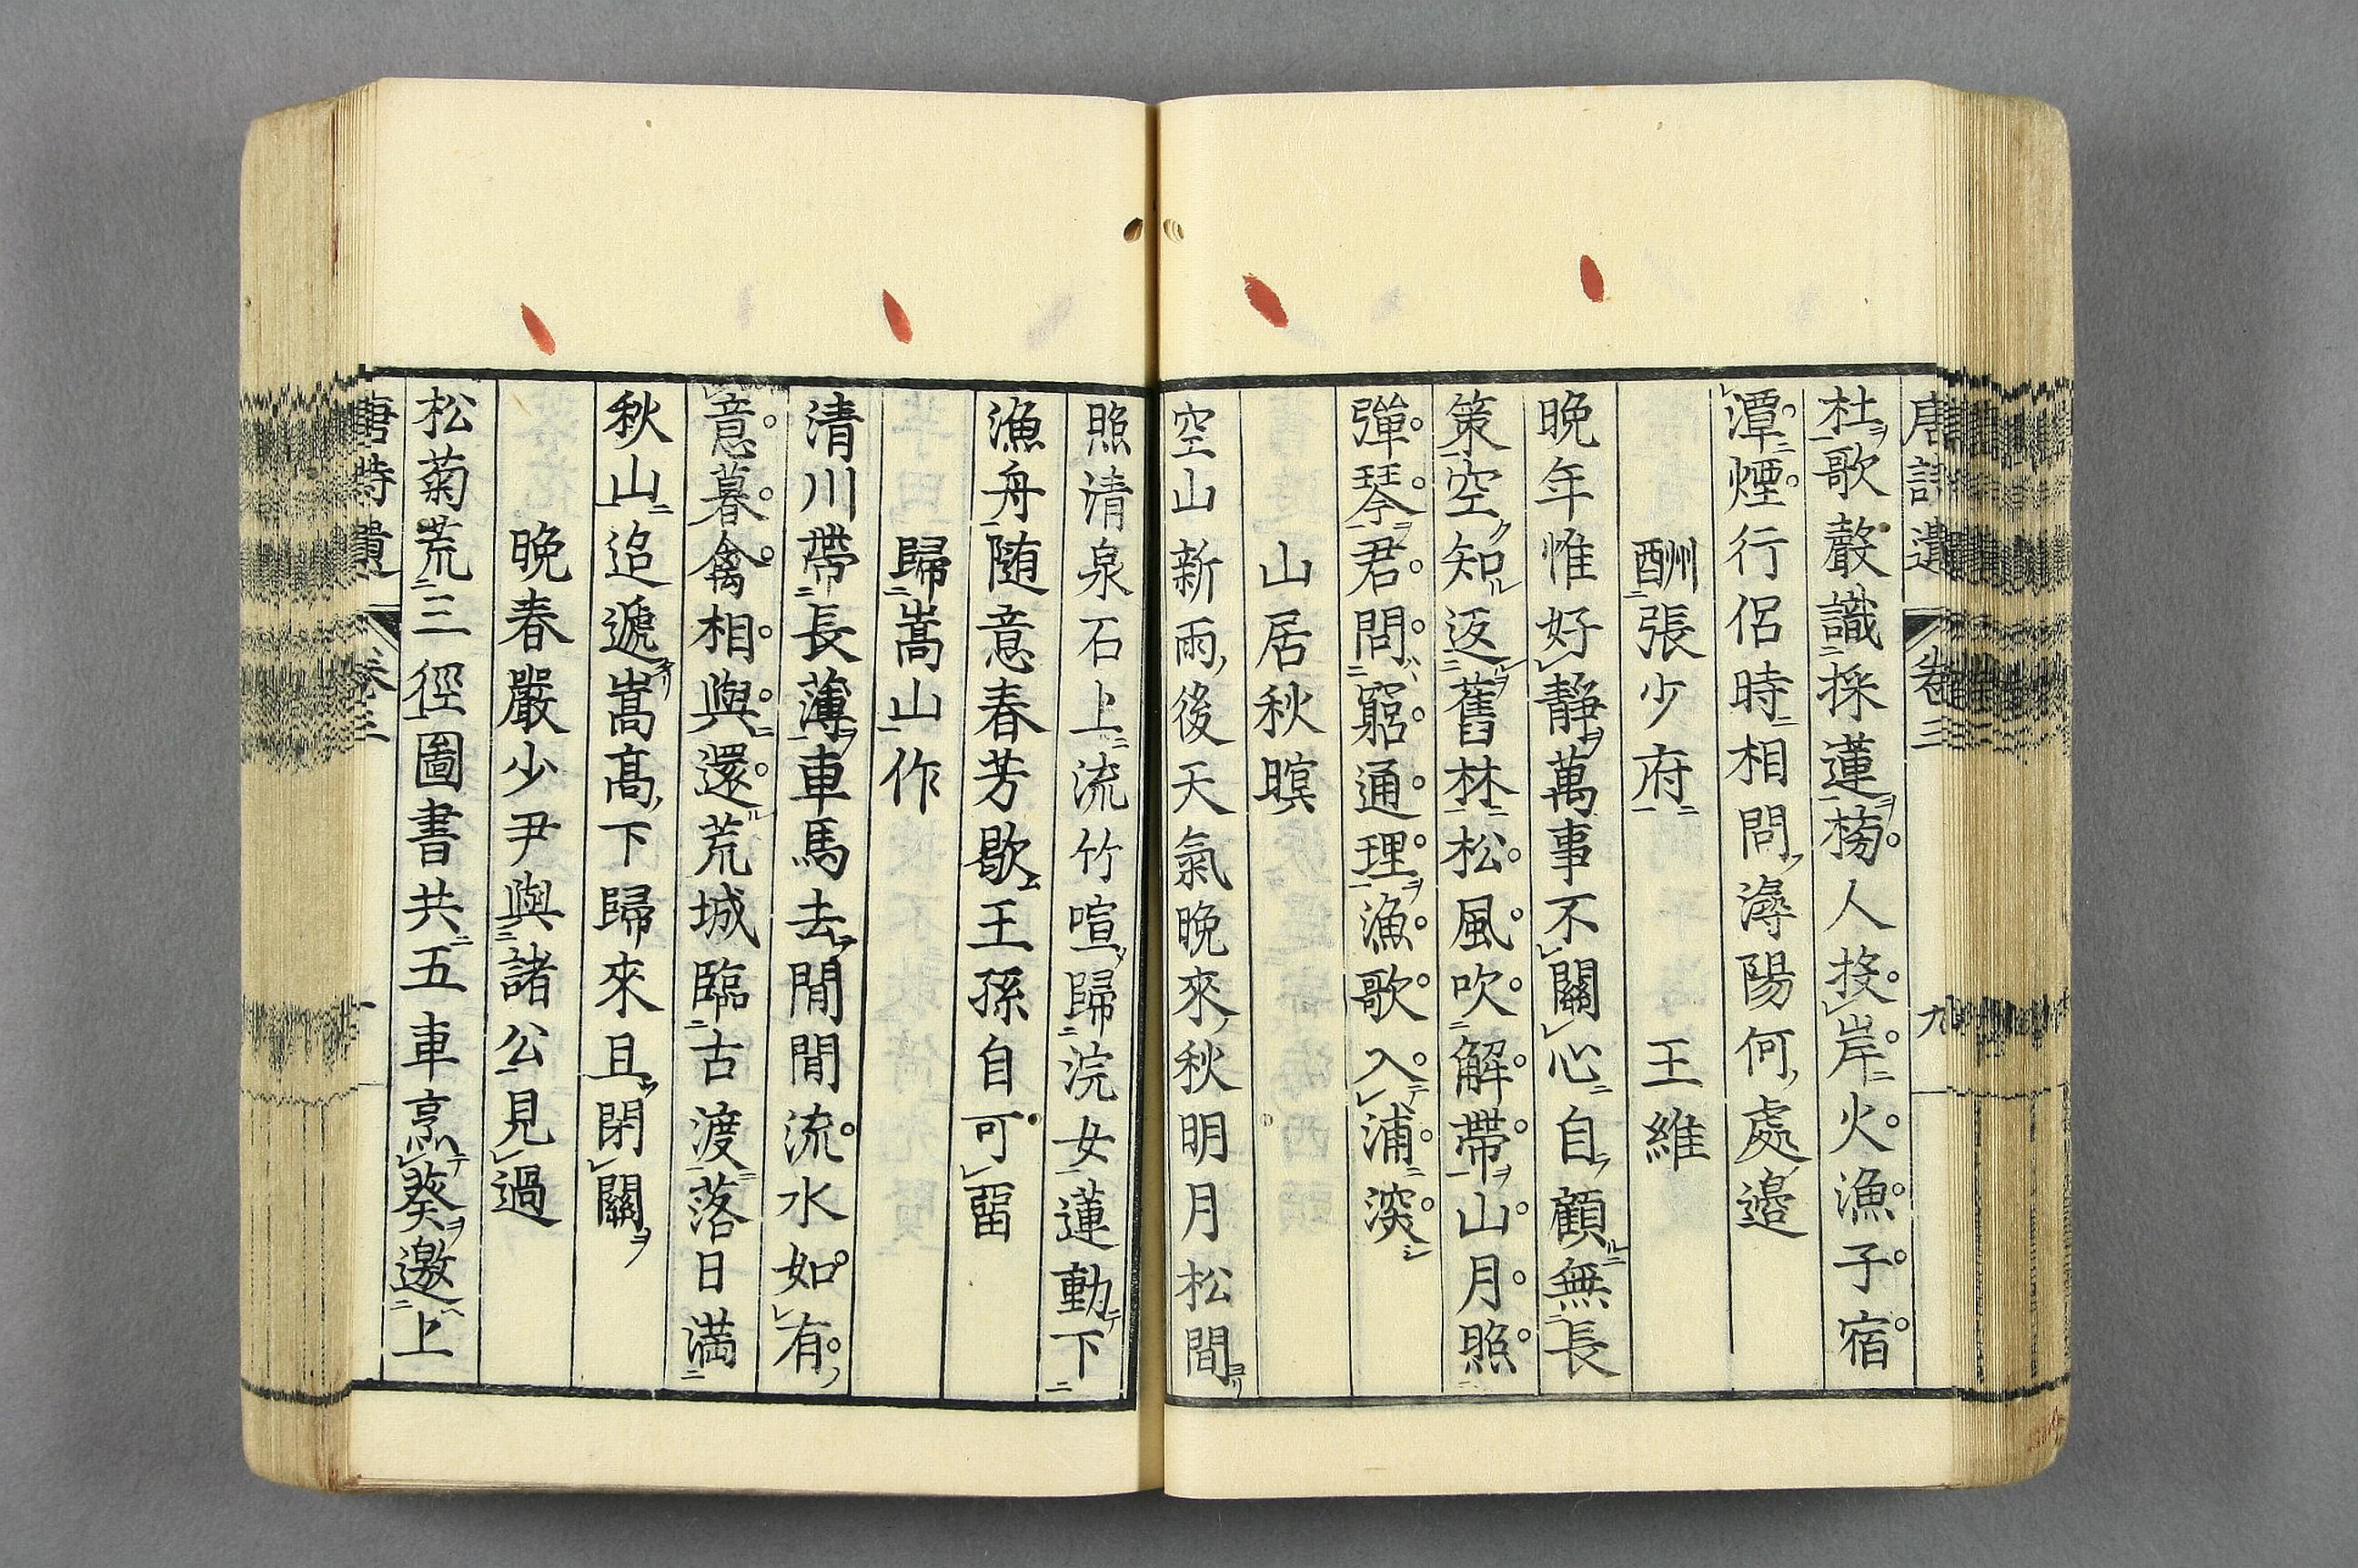 唐詩遺 卷三 九
杜歌聲識採蓮榜人投岸火漁子宿
潭煙行侶時相問潯陽何處邉
酬張少府 王維
晚年惟好靜萬事不關心自顧無長
策空知返舊林松風吹解帶山月照
彈琴君問窮通理漁歌入浦深
山居秋暝
空山新雨後天氣晚來秋明月松間
照清泉石上流竹喧歸浣女蓮動下
漁舟随意春芳歇王孫自可留
歸嵩山作
清川帶長薄車馬去閒閒流水如有
意暮禽相與還荒城臨古渡落日滿
秋山迢遞嵩高下歸來且閉關
晚春嚴少尹與諸公見過
松菊荒三徑圖書共五車烹葵邀上
唐詩遺 卷三